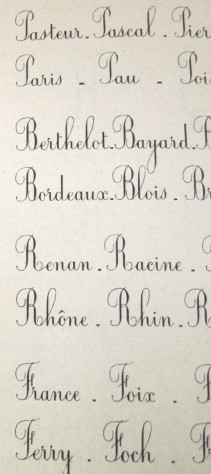 Pasteur. Pascal. Pier
Paris - Pau - Poi
Berthelot. Bayard.
Bordeaux. Blois. Br
Renan. Racine.
Rhône. Rhin. R
France. Foix.
Ferry. Foch.